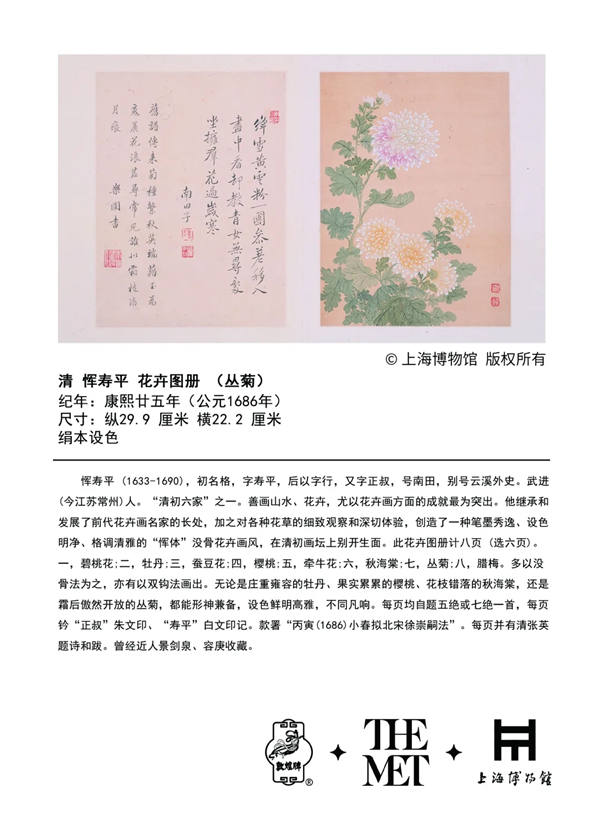 絳雪黄雲粉一團叅差移入
畫中看却教青女無尋處
坐擁羣花過歲寒
南田子
舊譜傳來菊種繁秋英
尋常見誰似霜枝淡
月痕
樂圃書
© 上海博物馆 版权所有
清 恽寿平 花卉图册 （丛菊）
纪年：康熙廿五年（公元1686年）
尺寸：纵29.9 厘米 横22.2 厘米
绢本设色
恽寿平 (1633-1690)，初名格，字寿平，后以字行，又字正叔，号南田，别号云溪外史。武进
(今江苏常州)人。“清初六家”之一。善画山水、花卉，尤以花卉画方面的成就最为突出。他继承和
发展了前代花卉画名家的长处，加之对各种花草的细致观察和深切体验，创造了一种笔墨秀逸、设色
明净、格调清雅的“恽体”没骨花卉画风，在清初画坛上别开生面。此花卉图册计八页 (选六页)。
一，碧桃花;二，牡丹;三，蚕豆花;四，樱桃;五，牵牛花;六，秋海棠;七，丛菊;八，腊梅。多以没
骨法为之，亦有以双钩法画出。无论是庄重雍容的牡丹、果实累累的樱桃、花枝错落的秋海棠，还是
霜后傲然开放的丛菊，都能形神兼备，设色鲜明高雅，不同凡响。每页均自题五绝或七绝一首，每页
钤“正叔”朱文印、“寿平”白文印记。款署“丙寅(1686)小春拟北宋徐崇嗣法”。每页并有清张英
题诗和跋。曾经近人景剑泉、容庚收藏。
敦煌牌
®
THE
MET
上海博物館